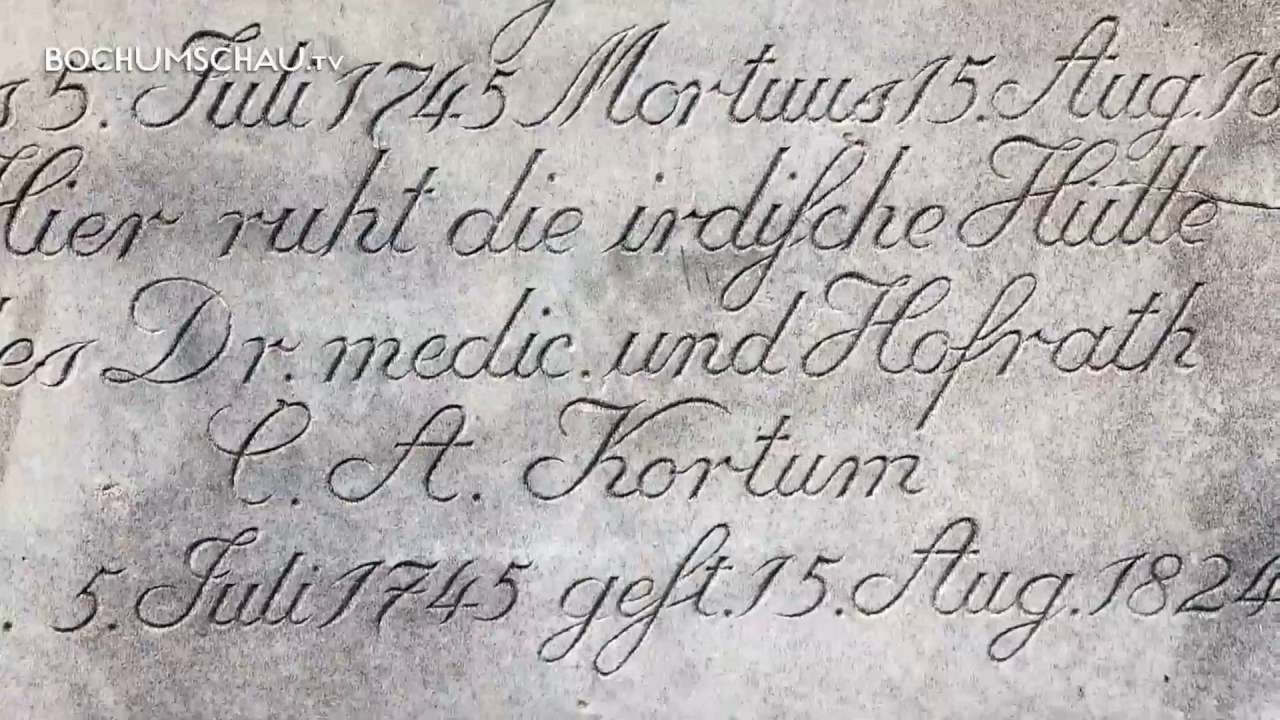 BOCHUMSCHAU.TV
s 5. Juli 1745 Mortuus 15. Aug. 18
Hier ruht die irdiſche Hütte
es Dr. medic. und Hofrath
C. A. Kortum
. 5. Juli 1745 geſt. 15. Aug. 1824